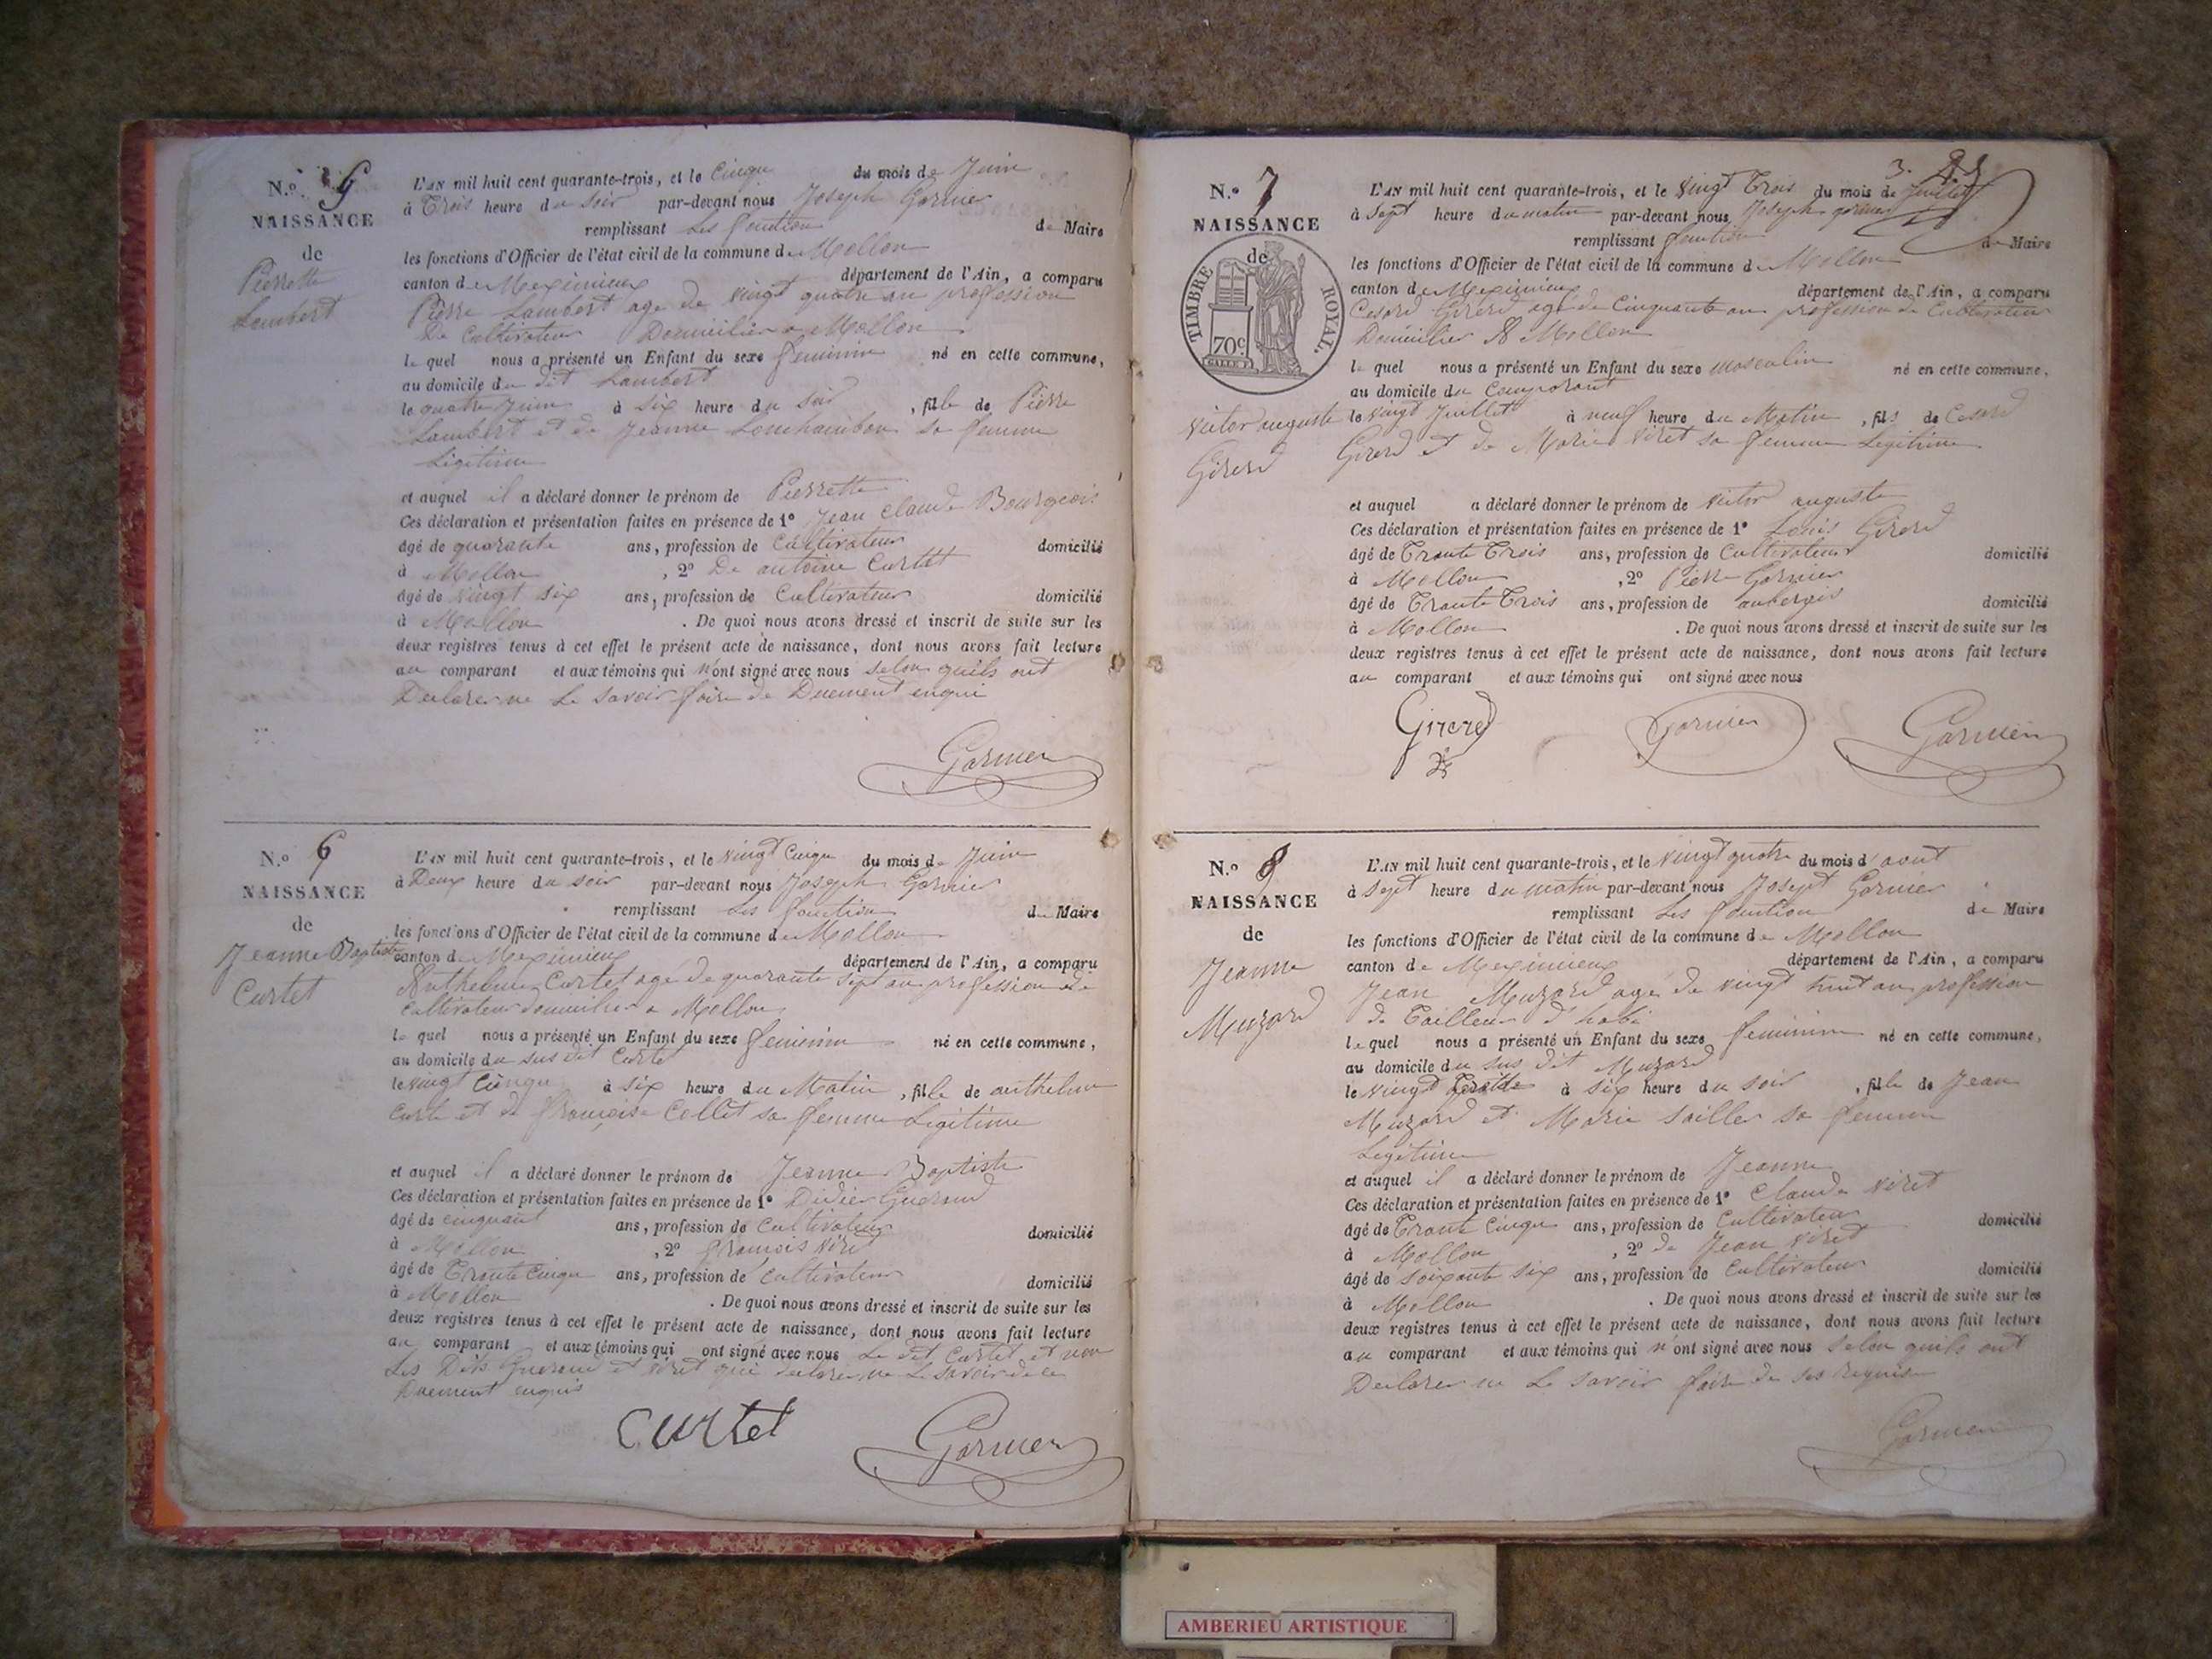 N.o 5
NAISSANCE
de
Pierrette
Lambert
L'AN mil huit cent quarante-trois, et le Cinqu du mois de Juin
à Trois heure du soir par-devant nous Joseph Garnier
remplissant Les fonction de Maire
les fonctions d'Officier de l'état civil de la commune de Mollon
canton de Meximieux département de l'Ain, a comparu
Pierre Lambert age de vingt quatre an profession
De Cultivateur Domicilier a Mollon
le quel nous a présenté un Enfant du sexe feminin né en cette commune,
au domicile du dit Lambert
le quatre Juin à Six heure du soir , fille de Pierre
Lambert et de Jeanne sa femme
Ligitime
et auquel il a déclaré donner le prénom de Pierrette
Ces déclaration et présentation faites en présence de 1° Jean Claude Bourgeois
âgé de quarante ans, profession de Cultivateur domicilié
à Mollon , 2° De antoine Curtet
âgé de vingt six ans, profession de Cultivateur domicilié
à Mollon . De quoi nous avons dressé et inscrit de suite sur les
deux registres tenus à cet effet le présent acte de naissance, dont nous avons fait lecture
au comparant et aux témoins qui n'ont signé avec nous selon quils ont
Declarer ne Le savoir faire de Duement enqui
Garnier
N.o 6
NAISSANCE
de
Jeanne Baptiste
Curtet
L'AN mil huit cent quarante-trois, et le vingt Cinqu du mois de Juin
à Deux heure du soir par-devant nous Joseph Garnier
remplissant Les fonction de Maire
les fonctions d'Officier de l'état civil de la commune de Mollon
canton de Meximieux département de l'Ain, a comparu
Anthelme Curtet age de quarante sept an profession de
Cultivateur domicilier a Mollon
le quel nous a présenté un Enfant du sexe feminin né en cette commune,
au domicile du sus dit Curtet
le vingt Cinqu à six heure du Matin , fille de anthelme
Curte et de françoise Collet sa femme Ligitime
et auquel il a déclaré donner le prénom de Jeanne Baptiste
Ces déclaration et présentation faites en présence de 1° Didier
âgé de cinquant ans, profession de Cultivateur domicilié
à Mollon , 2° françois Viret
âgé de Trante Cinqu ans, profession de Cultivateur domicilié
à Mollon . De quoi nous avons dressé et inscrit de suite sur les
deux registres tenus à cet effet le présent acte de naissance, dont nous avons fait lecture
au comparant et aux témoins qui ont signé avec nous Le dit Curtet et non
Les Dits et viret qui declarer ne Le savoir de ce
Duement enquis
Curtet
Garnier
3.
N.o 7
NAISSANCE
de
TIMBRE ROYAL.
70c.
Victor auguste
Girerd
L'AN mil huit cent quarante-trois, et le vingt Trois du mois de Juillet
à Sept heure du matin par-devant nous Joseph garnier
remplissant fonction de Maire
les fonctions d'Officier de l'état civil de la commune de Mollon
canton de Meximieux département de l'Ain, a comparu
Cesard Girerd agé de Cinquante an profession de Cultivateur
Domicilier A Mollon
le quel nous a présenté un Enfant du sexe masculin né en cette commune,
au domicile du Comparant
le vingt Juillet à neuf heure du Matin , fils de Cesard
Girerd et de Marie Viret sa femme Legitime
et auquel a déclaré donner le prénom de victor auguste
Ces déclaration et présentation faites en présence de 1° Louis Girerd
âgé de Trante Trois ans, profession de Cultivateur domicilié
à Mollon , 2° Pierre Garnier
âgé de Trante Trois ans, profession de domicilié
à Mollon . De quoi nous avons dressé et inscrit de suite sur les
deux registres tenus à cet effet le présent acte de naissance, dont nous avons fait lecture
au comparant et aux témoins qui ont signé avec nous
Girerd Garnier Garnier
N.o 8
NAISSANCE
de
Jeanne
Muzard
L'AN mil huit cent quarante-trois, et le vingt quatre du mois d'aout
à Sept heure du matin par-devant nous Josept Garnier
remplissant Les fonction de Maire
les fonctions d'Officier de l'état civil de la commune de Mollon
canton de Meximieux département de l'Ain, a comparu
Jean Muzard agé de vingt huit an profession
de Tailleur d'habi
le quel nous a présenté un Enfant du sexe feminin né en cette commune,
au domicile du sus dit Muzard
le vingt à six heure du soir , fille de Jean
Muzard et Marie sa femme
Legitime
et auquel il a déclaré donner le prénom de Jeanne
Ces déclaration et présentation faites en présence de 1° Claude Viret
âgé de Trante Cinqu ans, profession de Cultivateur domicilié
à Mollon , 2° de Jean Viret
âgé de Soixante six ans, profession de Cultivateur domicilié
à Mollon . De quoi nous avons dressé et inscrit de suite sur les
deux registres tenus à cet effet le présent acte de naissance, dont nous avons fait lecture
au comparant et aux témoins qui n'ont signé avec nous Selon quils ont
Declarer ne Le Savoir faire de ses requis
Garnier
AMBERIEU ARTISTIQUE